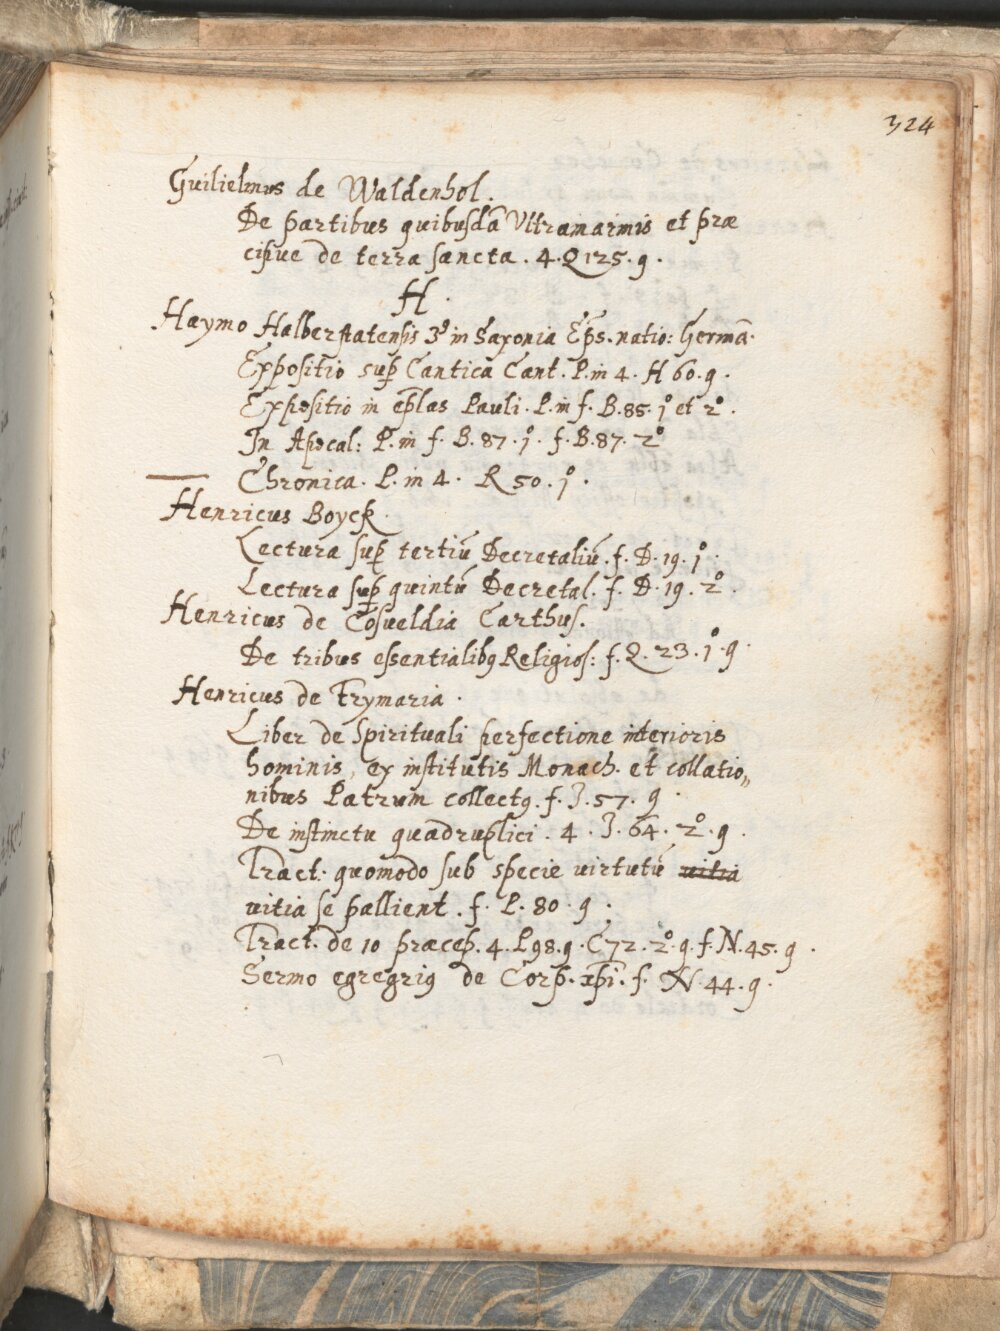 324
Guilielmus de Waldenhol.
De partibus quibusdā Vltramarinis et præ
cipue de terra sancta . 4. Q 125. 9 .
H .
Haymo Halberstatensis 3⁹ in Saxonia Eps. natio: Germā.
Expositio sup Cantica Cant. P. in 4. H 60. 9 .
Expositio in eplas Pauli. P. in f. B. 85. 1º et 2º .
In Apocal: P. in f. B. 87. 1º. f. B. 87. 2º
Chronica. P. in 4. R 50. 1º .
Henricus Boyck .
Lectura sup tertiū Decretaliū. f. D. 19. 1º .
Lectura sup quintū Decretal. f. D. 19. 2º .
Henricus de Cosueldia Carthus.
De tribus essentialibq Religios: f. Q. 23. 1º. 9 .
Henricus de Frymaria .
Liber de Spirituali perfectione interioris
hominis, ex institutis Monach. et collatio„
nibus Patrum collectq. f. J. 57. 9 .
De instinctu quadruplici . 4 . J. 64. 2º. 9 .
Tract. quomodo sub specie uirtutū uitia
uitia se pallient . f. P. 80 . 9 .
Tract. de 10 præcep. 4. P 98. 9. C 72. 2º. 9. f. N. 45. 9 .
Sermo egregriq de Corp. xpi. f. N 44. 9 .